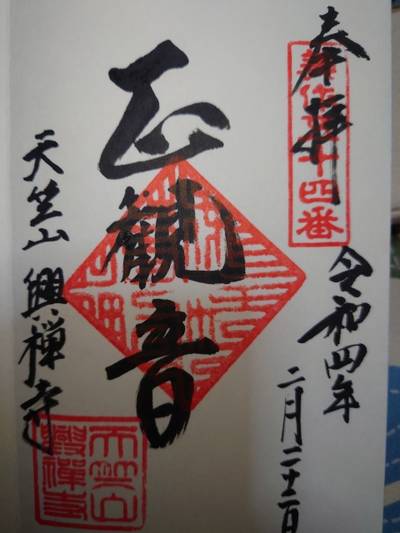 奉拝
十四番
令和四年
二月二十二日
正観音
天竺山 興禅寺
天竺山
興禅寺